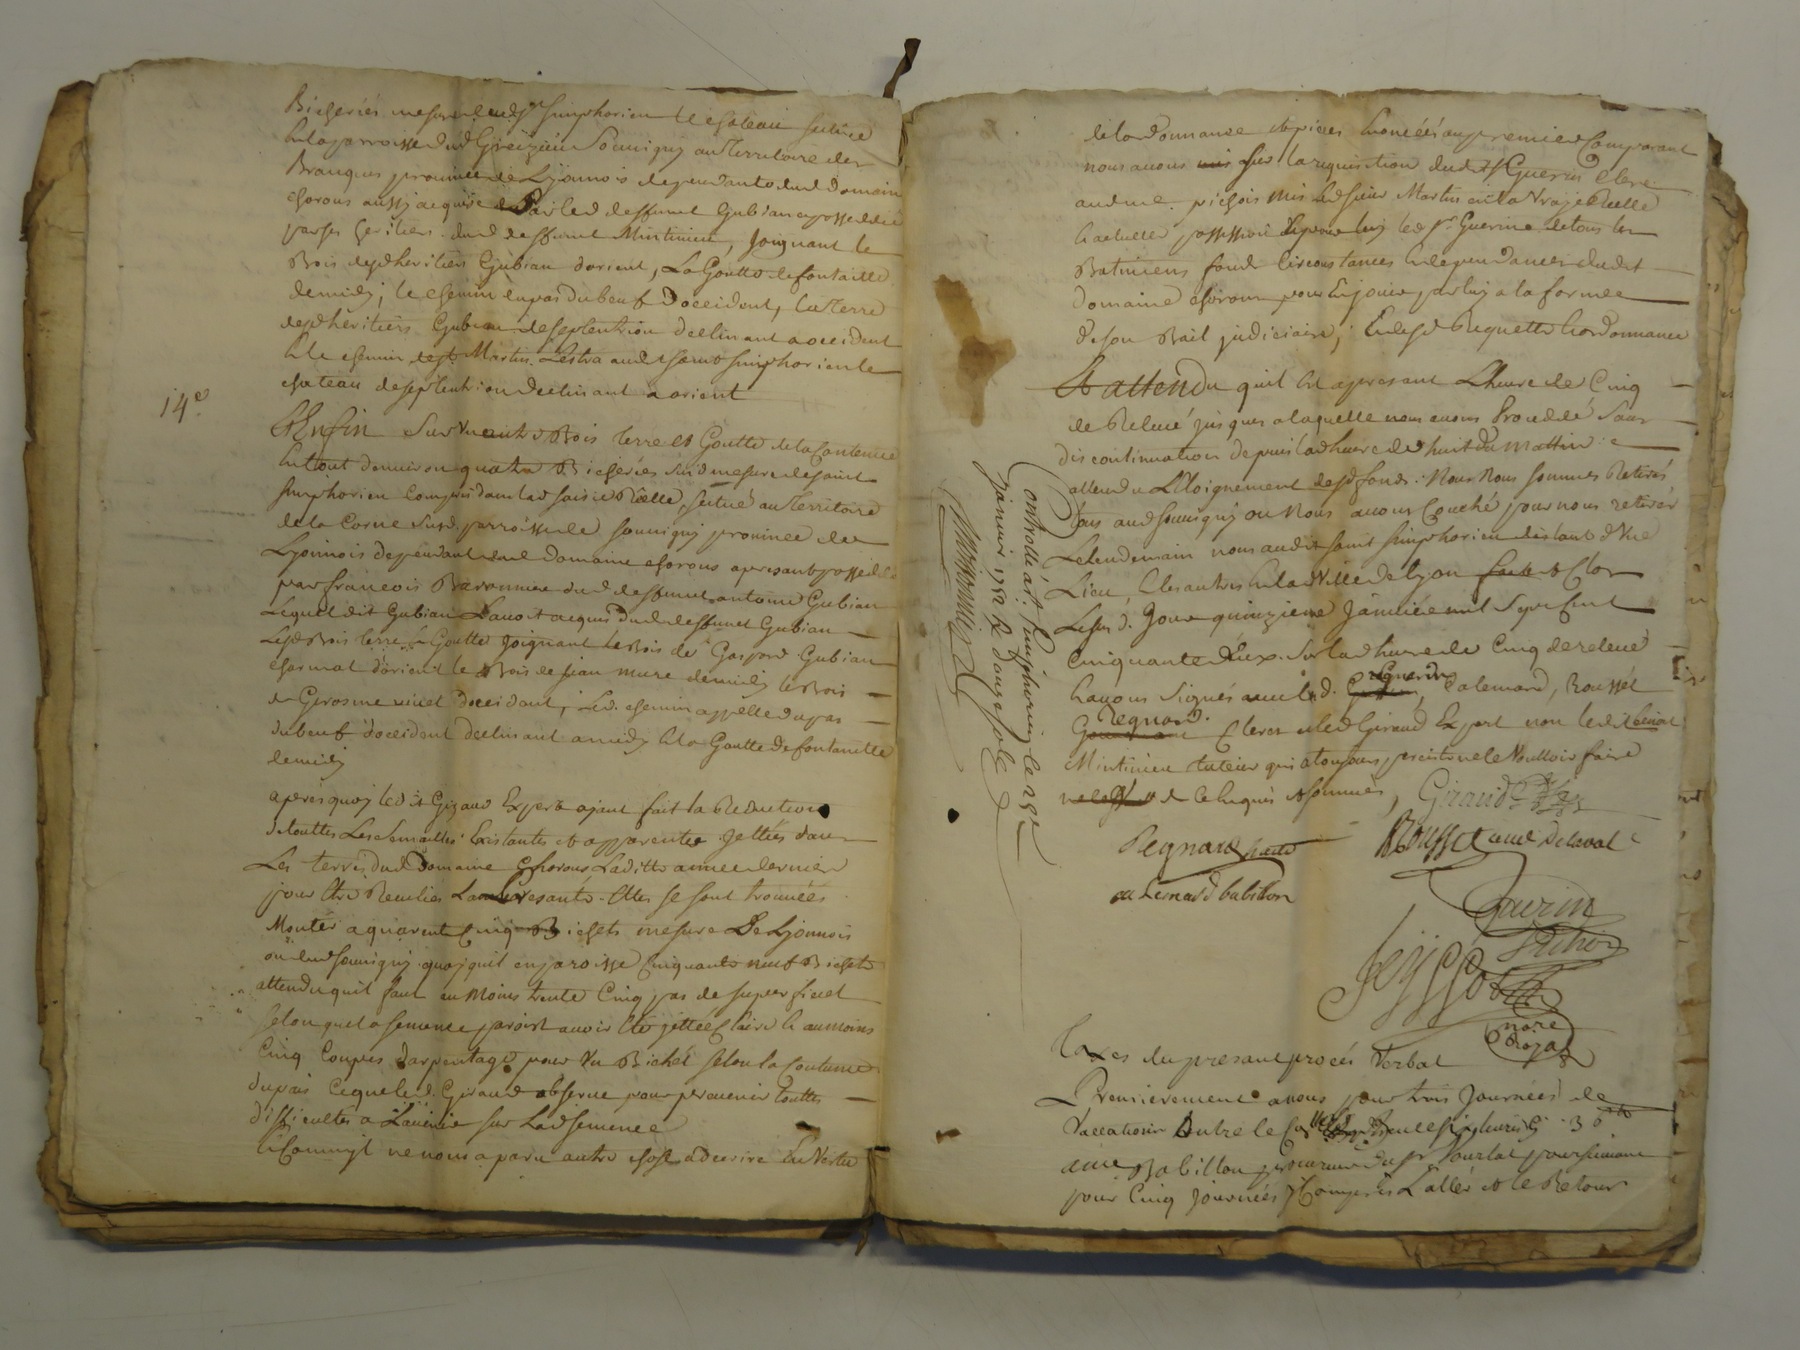 Bicherées mesure dudt St Simphorien le chateau scitué
En la parroisse dud Greizieu Souvigny au Territoire des
Branques province de Lyonnois dependants dud domaine
chorous aussi acquise Par led deffunt Gubian et possedée
par ses heritiers dud deffunt Mintinieu, Joignant le
Bois desd heritiers Gubian d'orient, La Goutte de fontaille
de midy, le chemin du pas du beuf D'occident, la Terre
desd heritiers Gubian de septentrion declinant a occident
Et le chemin de St Martin Lestra aud saint Simphorien le
chateau de septentrion declinant a orient
14e. Et Enfin Sur un autre Bois terre et Goutte de la Contenue
En tout d'environ quatre Bicherées susd mesure de saint
Simphorien compris dans lad saisie Réelle, scitué au Territoire
de la Corne susd. parroisse de Souvigny province de
Lyonnois dependant dud domaine chorous apresant possedé
par francois Baronnier dud deffunt antoine Gubian
Lequel dit Gubian L'avoit acquis dud deffunt Gubian
Lesd Bois terre & Goutte Joignant le Bois de Gaspard Gubian
charmat d'orient le Bois de jean mure de midy le Bois
de Gerosme vinet d'occident, Led. chemin appelle du pas
du beuf d'occident declinant a midy Et la Goutte de fontanille
de midy
apres quoy led sr Giraud Expert ajant fait la Reduction
de touttes Les semailles Existantes et apparentes Jettées dans
Les terres dud Domaine Chorous Laditte année derniere
pour Etre Reculies La Presante Elles se sont trouvées
Monter a quarente Cinq Bichets mesure De Lyonnois
ou dud Souvigny quoyquil en paroisse Cinquante neuf Bichets
attendu quil faut au Moins trente Cinq pas de superficiel
selon que la semence paroist avoir Eté jettée Claire & au moins
Cinq Coupes d'arpentage pour Un Bichet selon la Coutume
du pais Ce que led. Giraud observe pour prevenir touttes
difficultés a L'avenir sur Lad semence
Et Comme jl ne nous a paru autre chose a decrire En Vertu
de lordonnance et pieces Enoncées au premier Comparant
nous avons sur la requisition dudit Sr Guerin Clerc
audme. pichois mis Led sieur Martin En la Vraye Réelle
Et actuelle possession Et pour luy led sr Guerin de tous les
Batimens fonds Circonstances Et dependances dudt
Domaine chorous pour En jouir par luy a la forme
de son Bail judiciaire, Et desd Requette & ordonnance
Et attendu quil Est apresant L'heure de Cinq
de Relevé jusques a laquelle nous avons Procedé sans
discontinuation depuis lad heure de huit du mattin
attendu L'Eloignement desd fonds. Nous Nous sommes Retirés
tous aud Souvigny ou Nous avons Couché pour nous retirer
Le lendemain nous audit saint Simphorien distant d'Une
Lieu, Et les autres En la Ville de Lyon fait & Clos
Lesus d. Jour quinzieme Janvié mil Sept Cent
Cinquante Deux. sur lad heure de Cinq de relevé
Et avons Signés avec led. Regnard Calemard, Rousset
Regnard. Clercs et led Giraud Expert non led sr benoit
Mintinieu tuteur qui a toujours persisté ne le Vouloir faire
de Ce Enquis & sommés, Giraud
Regnard Rousset aud delaval
Calemard babillon
Guerin
Pichois
Jeyssot
nore
Royal
Controllé a st Simphorien le 28e
janvier 1752 R douze sols
Taxes du presant procés Verbal
Premierement a nous pour trois Journées de
Vaccations
a me Babillon procureur du sr poursuivant
pour Cinq Journées y Compris L'aller & le Retour